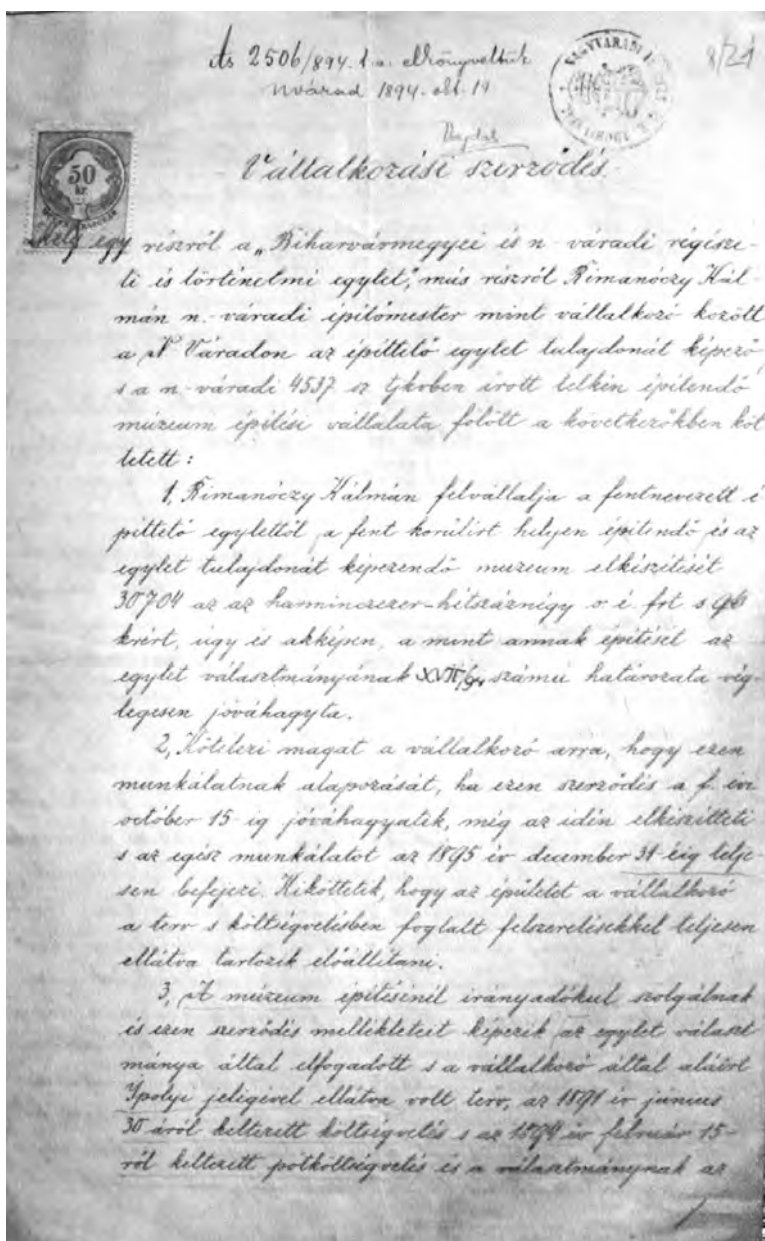 As 2506/894. l. a. elkönyveltük
Nvárad 1894. okt. 19
8/21
50
kr.
Vállalkozási szerződés.
mely egy részről a „Biharvármegyei és n-váradi régésze-
ti és történelmi egylet”, más részről Rimanóczy Kál-
mán n.-váradi építőmester mint vállalkozó között
a N Váradon az építtető egylet tulajdonát képező,
s a n-váradi 4537 sz tjkvben írott telkén építendő
múzeum építési vállalata fölött a következőkben köt
tetett:
1, Rimanóczy Kálmán felvállalja a fentnevezett é
píttető egylettől, a fent körülírt helyen építendő és az
egylet tulajdonát képezendő muzeum elkészítését
30704 az az harminczezer-hétszáznégy o. é. frt s 96
krért, úgy és akképen, a mint annak építését az
egylet választmányának XVII/94 számú határozata vég-
legesen jóváhagyta.
2, Kötelezi magát a vállalkozó arra, hogy ezen
munkálatnak alapozását, ha ezen szerződés a f. évi
october 15 ig jóváhagyatik, még az idén elkészítteti
s az egész munkálatot az 1895 év december 31-éig telje-
sen befejezi. Kiköttetik, hogy az épületet a vállalkozó
a terv s költségvetésben foglalt felszerelésekkel teljesen
ellátva tartozik előállítani.
3, A múzeum építésénél irányadókul szolgálnak
és ezen szerződés mellékleteit képezik az egylet választ
mánya által elfogadott s a vállalkozó által aláírt
Ipolyi jeligével ellátva volt terv, az 1891 év június
30 áról keltezett költségvetés s az 1894 év február 15-
ről keltezett pótköltségvetés és a választmánynak az